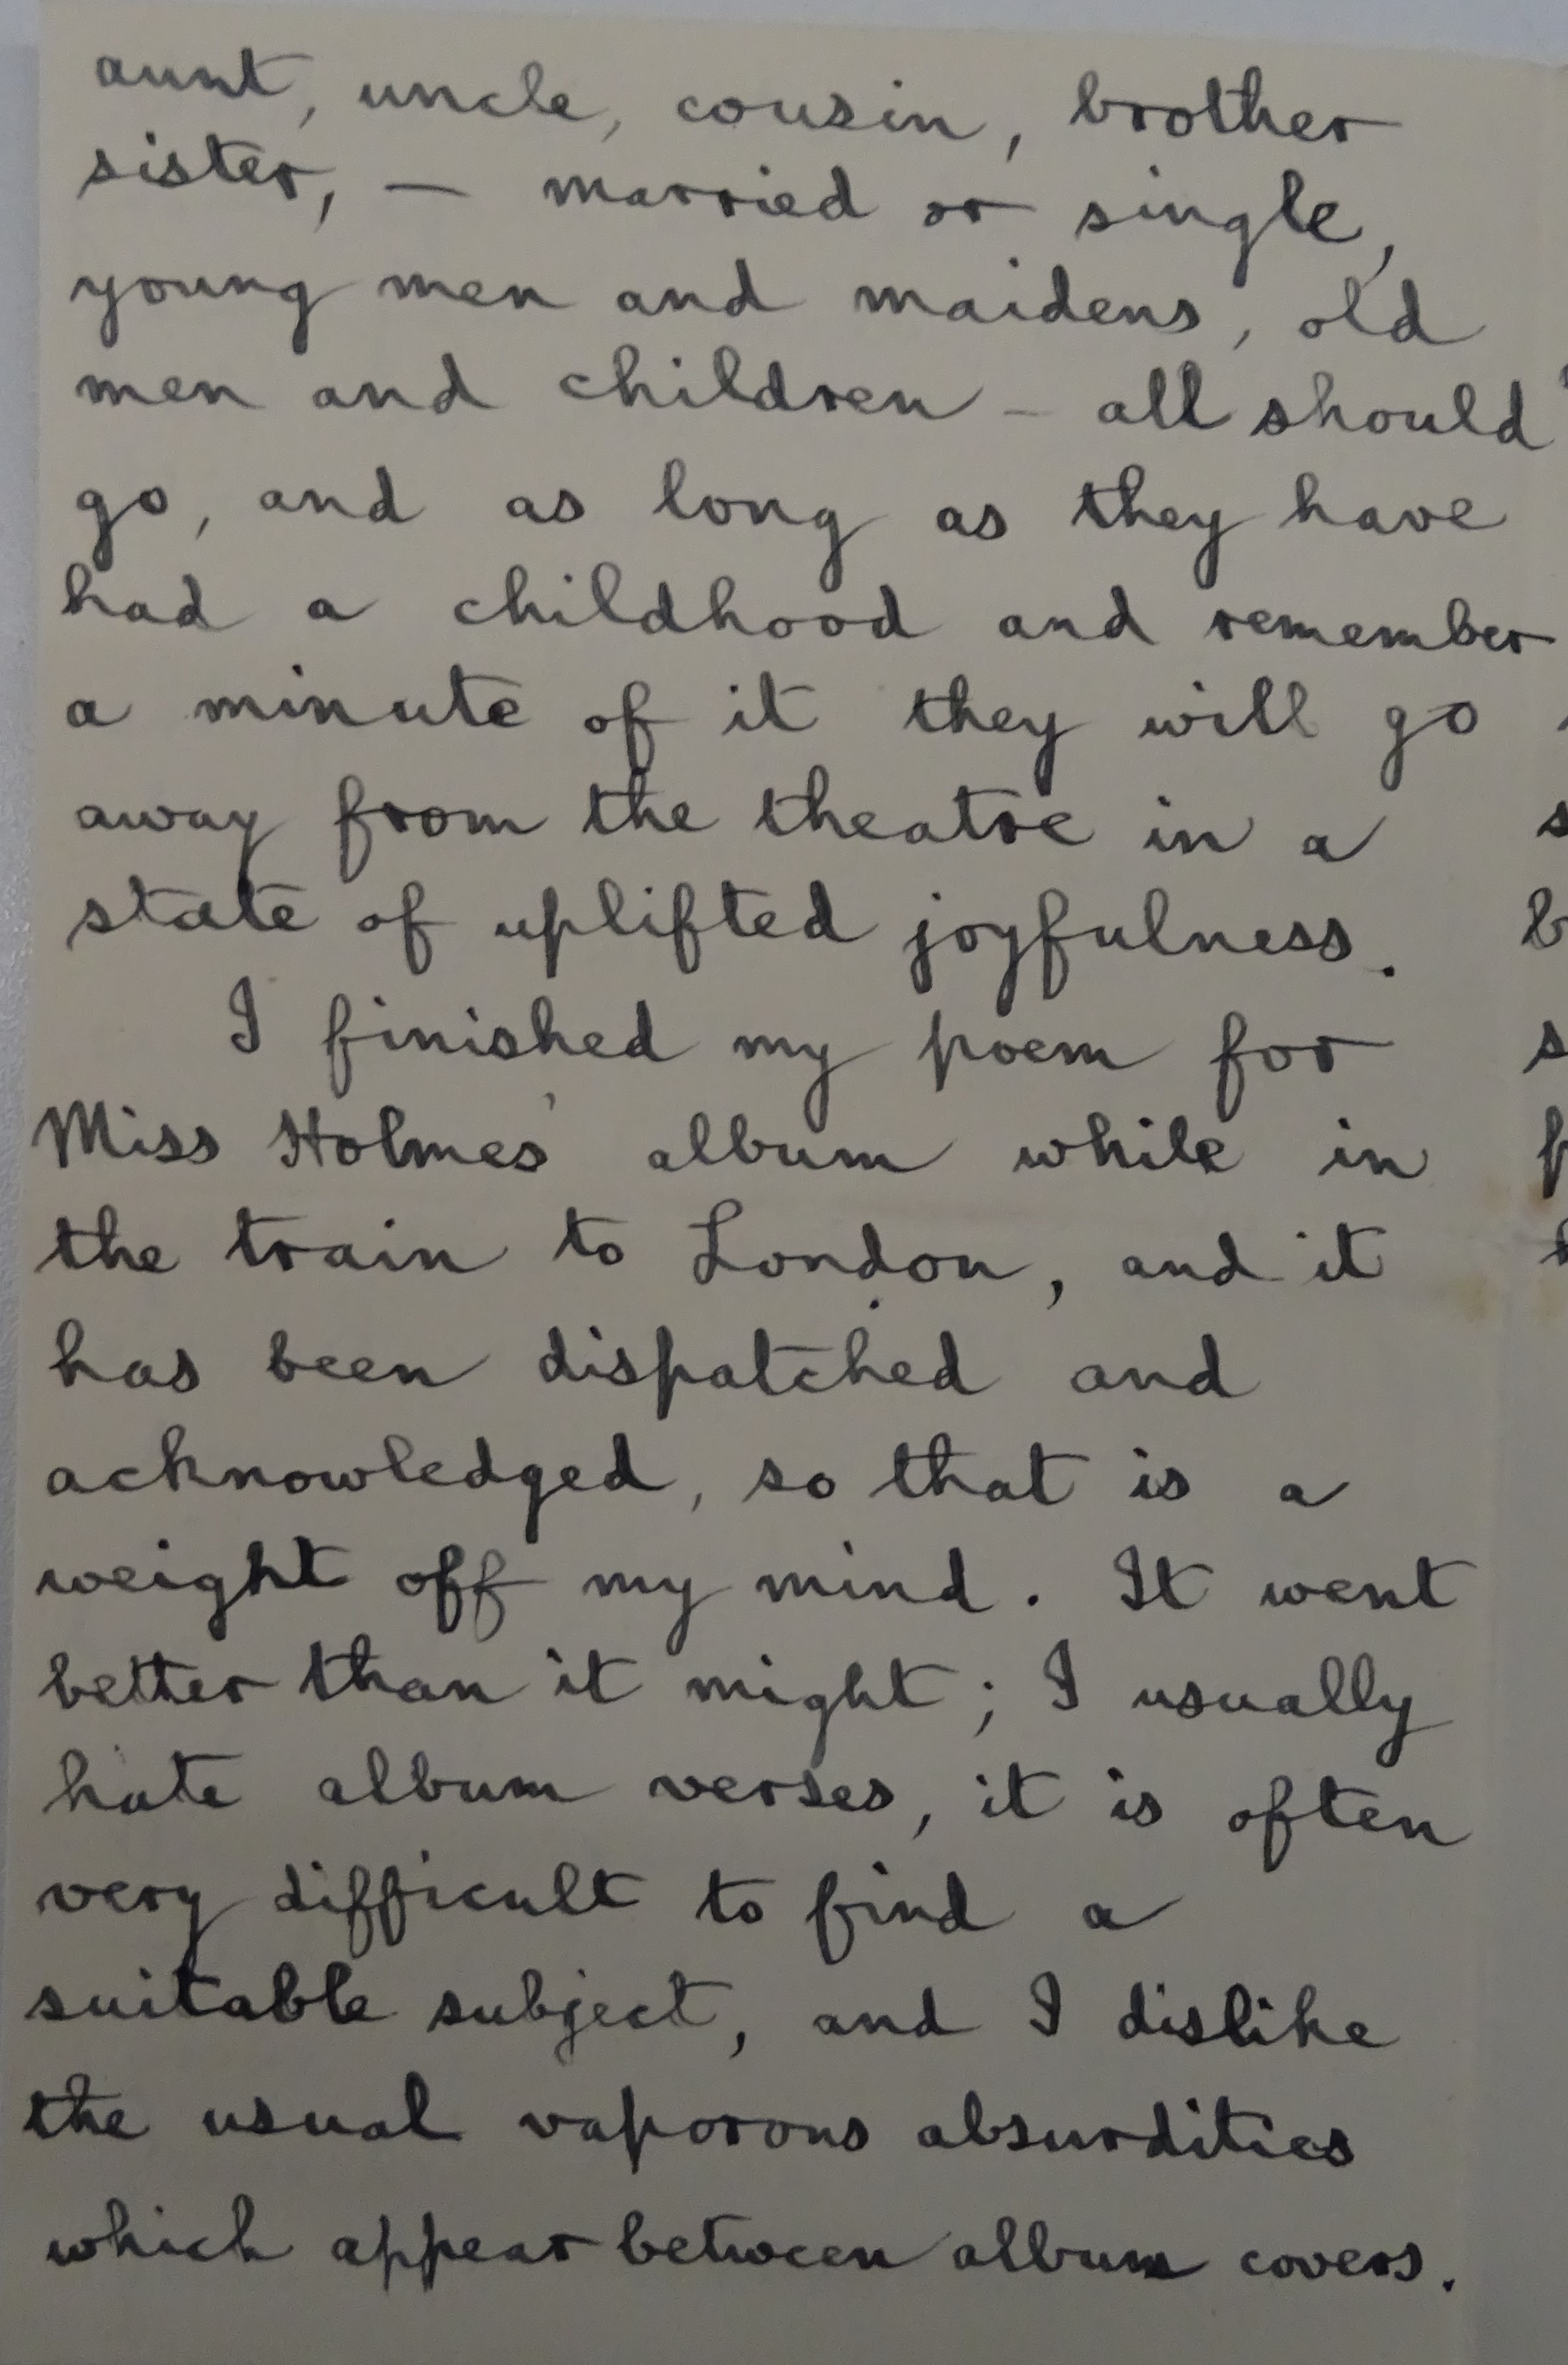 aunt, uncle, cousin, brother
sister, — married or single,
young men and maidens, old
men and children – all should
go, and as long as they have
had a childhood and remember
a minute of it they will go
away from the theatre in a
state of uplifted joyfulness.
I finished my poem for
Miss Holmes' album while in
the train to London, and it
has been dispatched and
acknowledged, so that is a
weight off my mind. It went
better than it might; I usually
hate album verses, it is often
very difficult to find a
suitable subject, and I dislike
the usual vaporous absurdities
which appear between album covers.